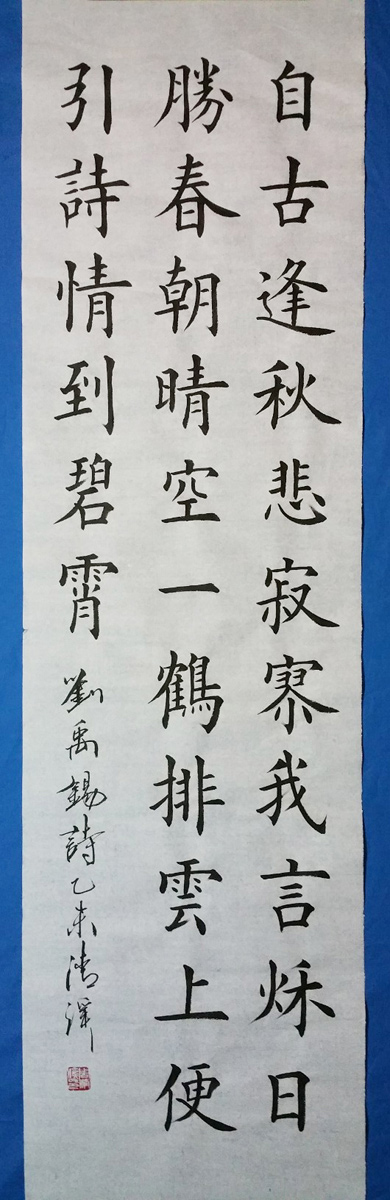 自古逢秋悲寂寥我言秌日
勝春朝晴空一鶴排雲上便
引詩情到碧霄 劉禹錫詩乙未